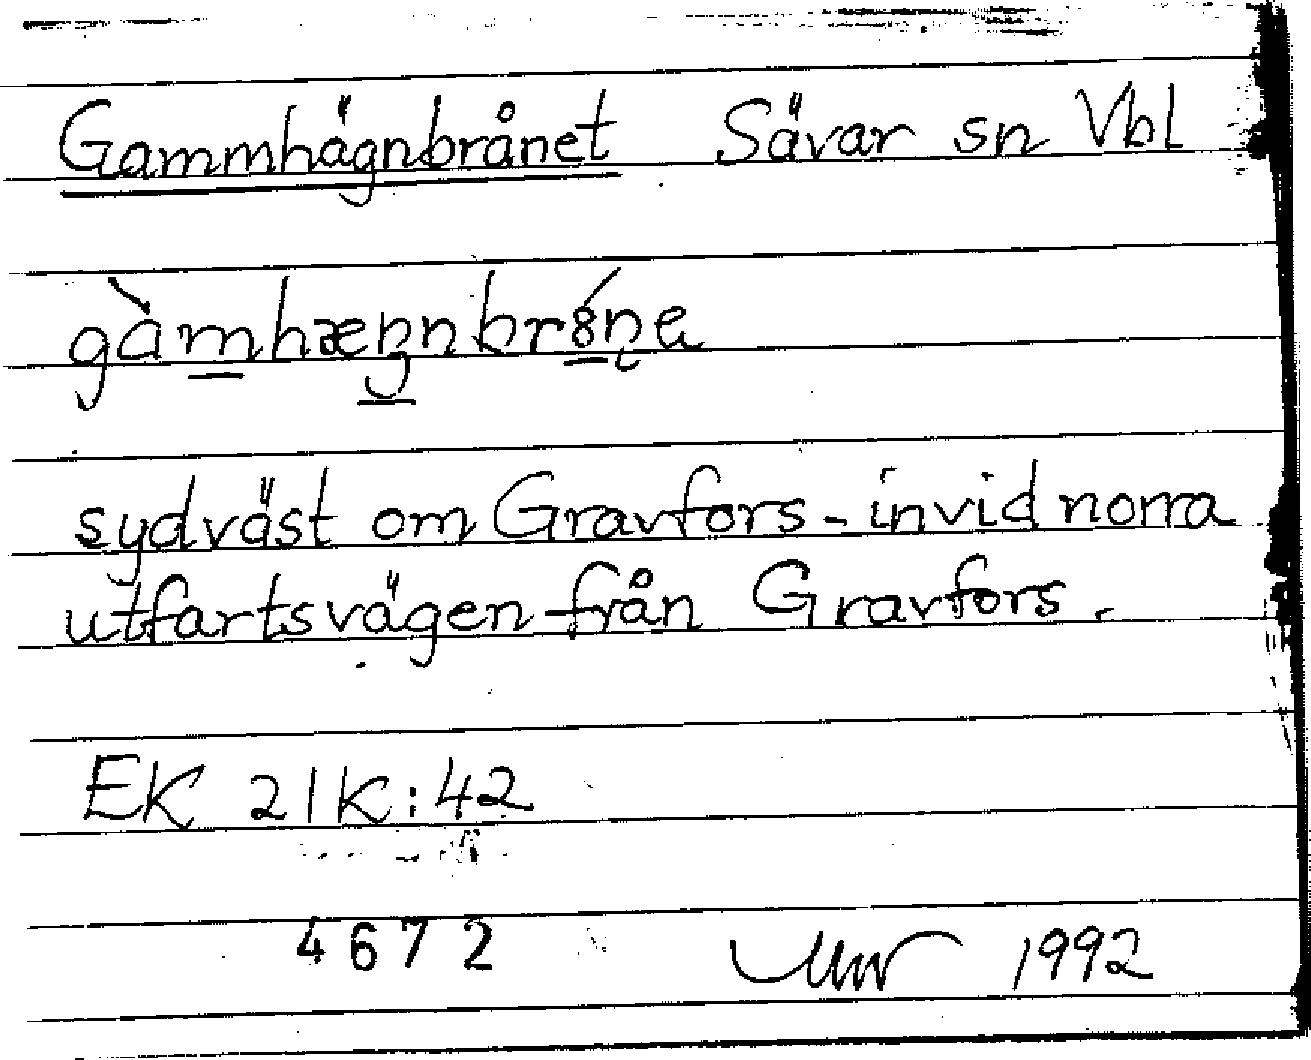 Gammhägnbrånet Sävar sn Vbl
gàmhæŋnbrȣ́n̨e
sydväst om Gravfors - invid norra
utfartsvägen från Gravfors.
EK 21K:42
4672 1992